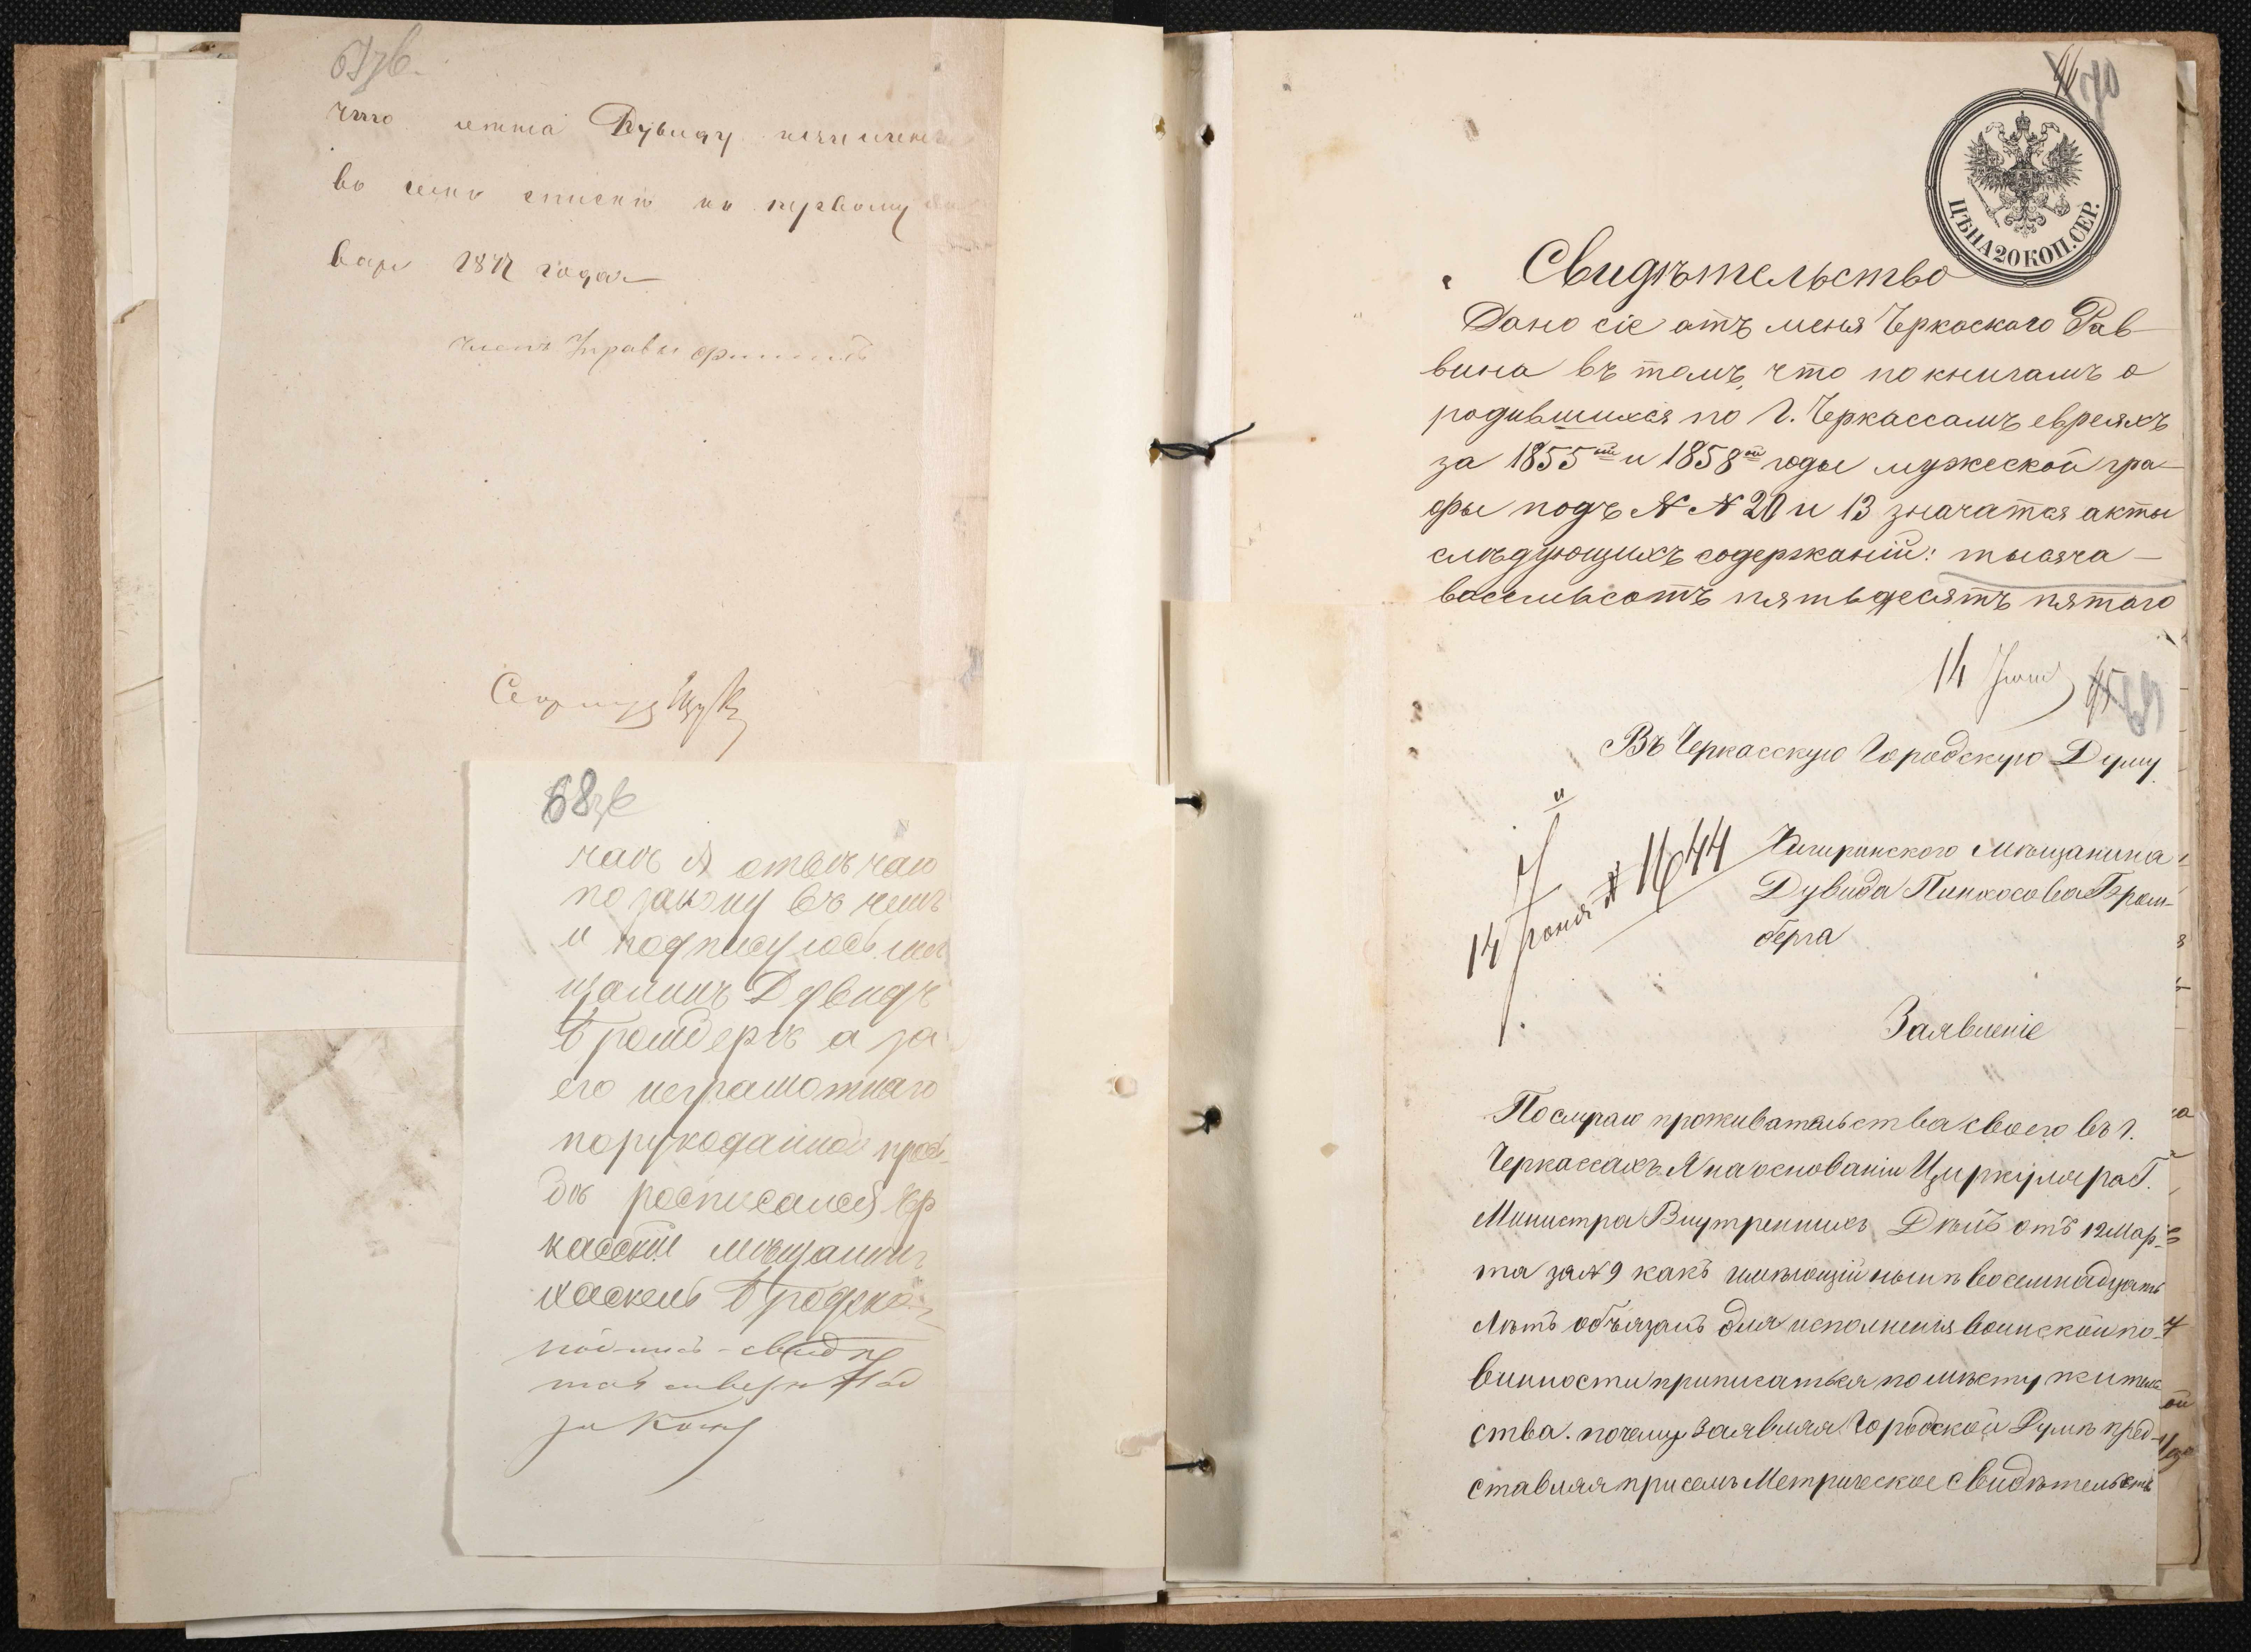 67об.
что лета Дувиду
во семь списки по первому ян
варя 1877 года
членъ Управы
Секретарь
68об
чаю я отвечаю
по закону въ чемъ
и подписуюсь мѣ
щанинъ Дувидъ
Бромберъ а за
его неграмотнаго
порукоданной прось
бѣ росписался Чер
касскій мѣщанинъ
Хаскель Бродска
закону
94 70
ЦѢНА 20 КОП. СЕР.
Свидѣтельство
Дано сіе отъ меня Черкаскаго Рав
вина въ томъ, что по книгамъ о
родившихся по г. Черкассамъ евреяхъ
за 1855й и 1858й годы мужеской гра-
фы подъ N N 20 и 13 значатся акты
слѣдующихъ содержаній: тысяча
восемьсотъ пятьдесятъ пятого
14 Іюня 95 69
Въ Черкасскую Городскую Думу
14 Іюня N 1644
Чигиринского Мѣщанина
Дувида Пинхосова Бром-
берга
Заявленіе
По случаю проживательства своего въ г.
Черкассахъ Я на основаніи Циркуляра Г.
Министра Внутреннихъ Дѣлъ отъ 12 Мар-
та за N 9 какъ имѣющій нынѣ восемнадцать
лѣтъ обязанъ для исполненія воинской по-
винности приписаться по мѣсту житель
ства. почему Заявляя Городской Думѣ пред-
ставляя присемъ Метрическое свидѣтельств